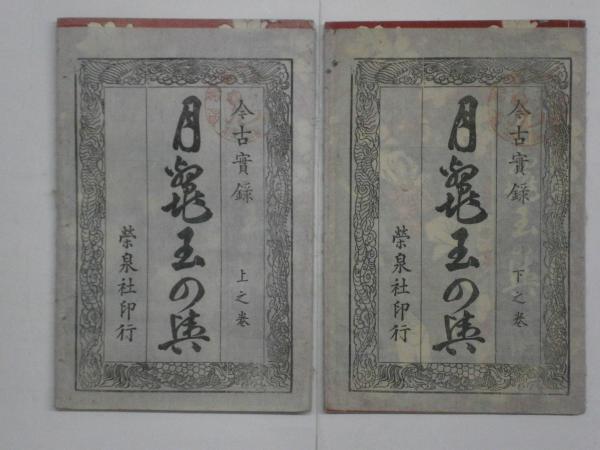 今古實録
上之巻
月鼈玉の輿
榮泉社印行
今古實録
下之巻
月鼈玉の輿
榮泉社印行